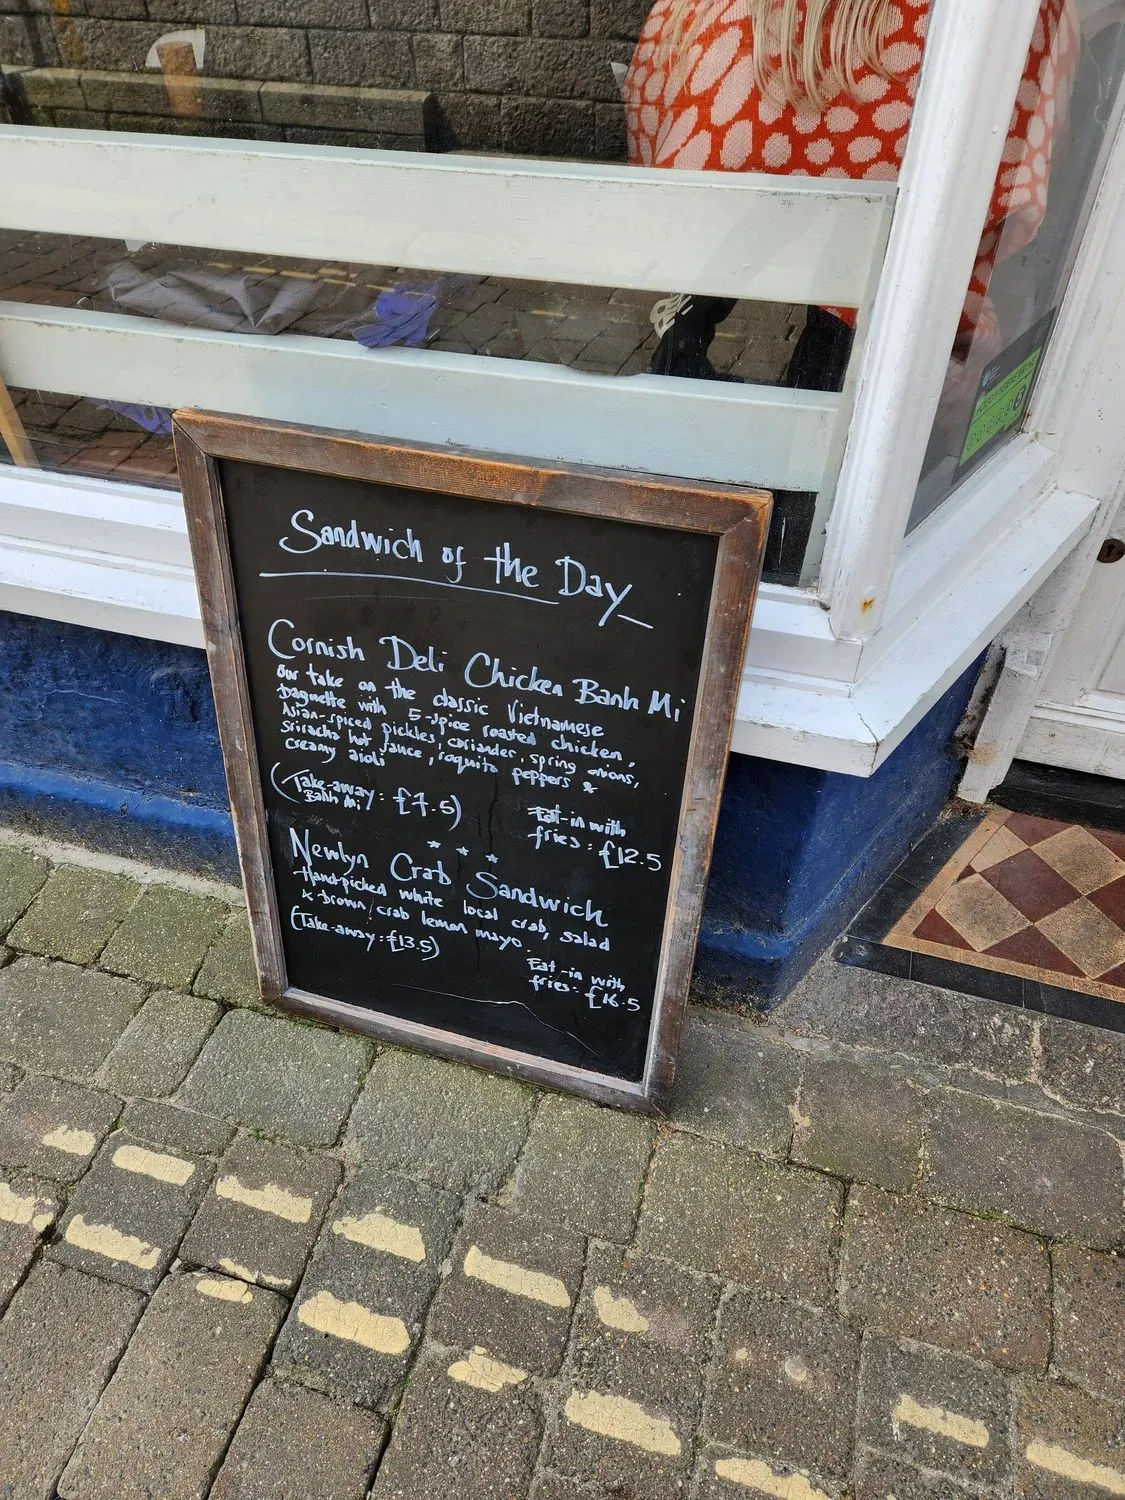 Sandwich of the Day
Cornish Deli Chicken Banh Mi
Our take on the classic Vietnamese
Baguette with 5-spice roasted chicken,
Asian-spiced pickles, coriander, spring onions,
Sriracha hot sauce, roquito peppers &
creamy aioli
(Take-away: £7.5)
Banh Mi
Eat-in with
fries: £12.5
Newlyn Crab Sandwich
Hand-picked white local crab, salad
& brown crab lemon mayo.
(Take-away: £13.5)
Eat-in with
fries: £16.5